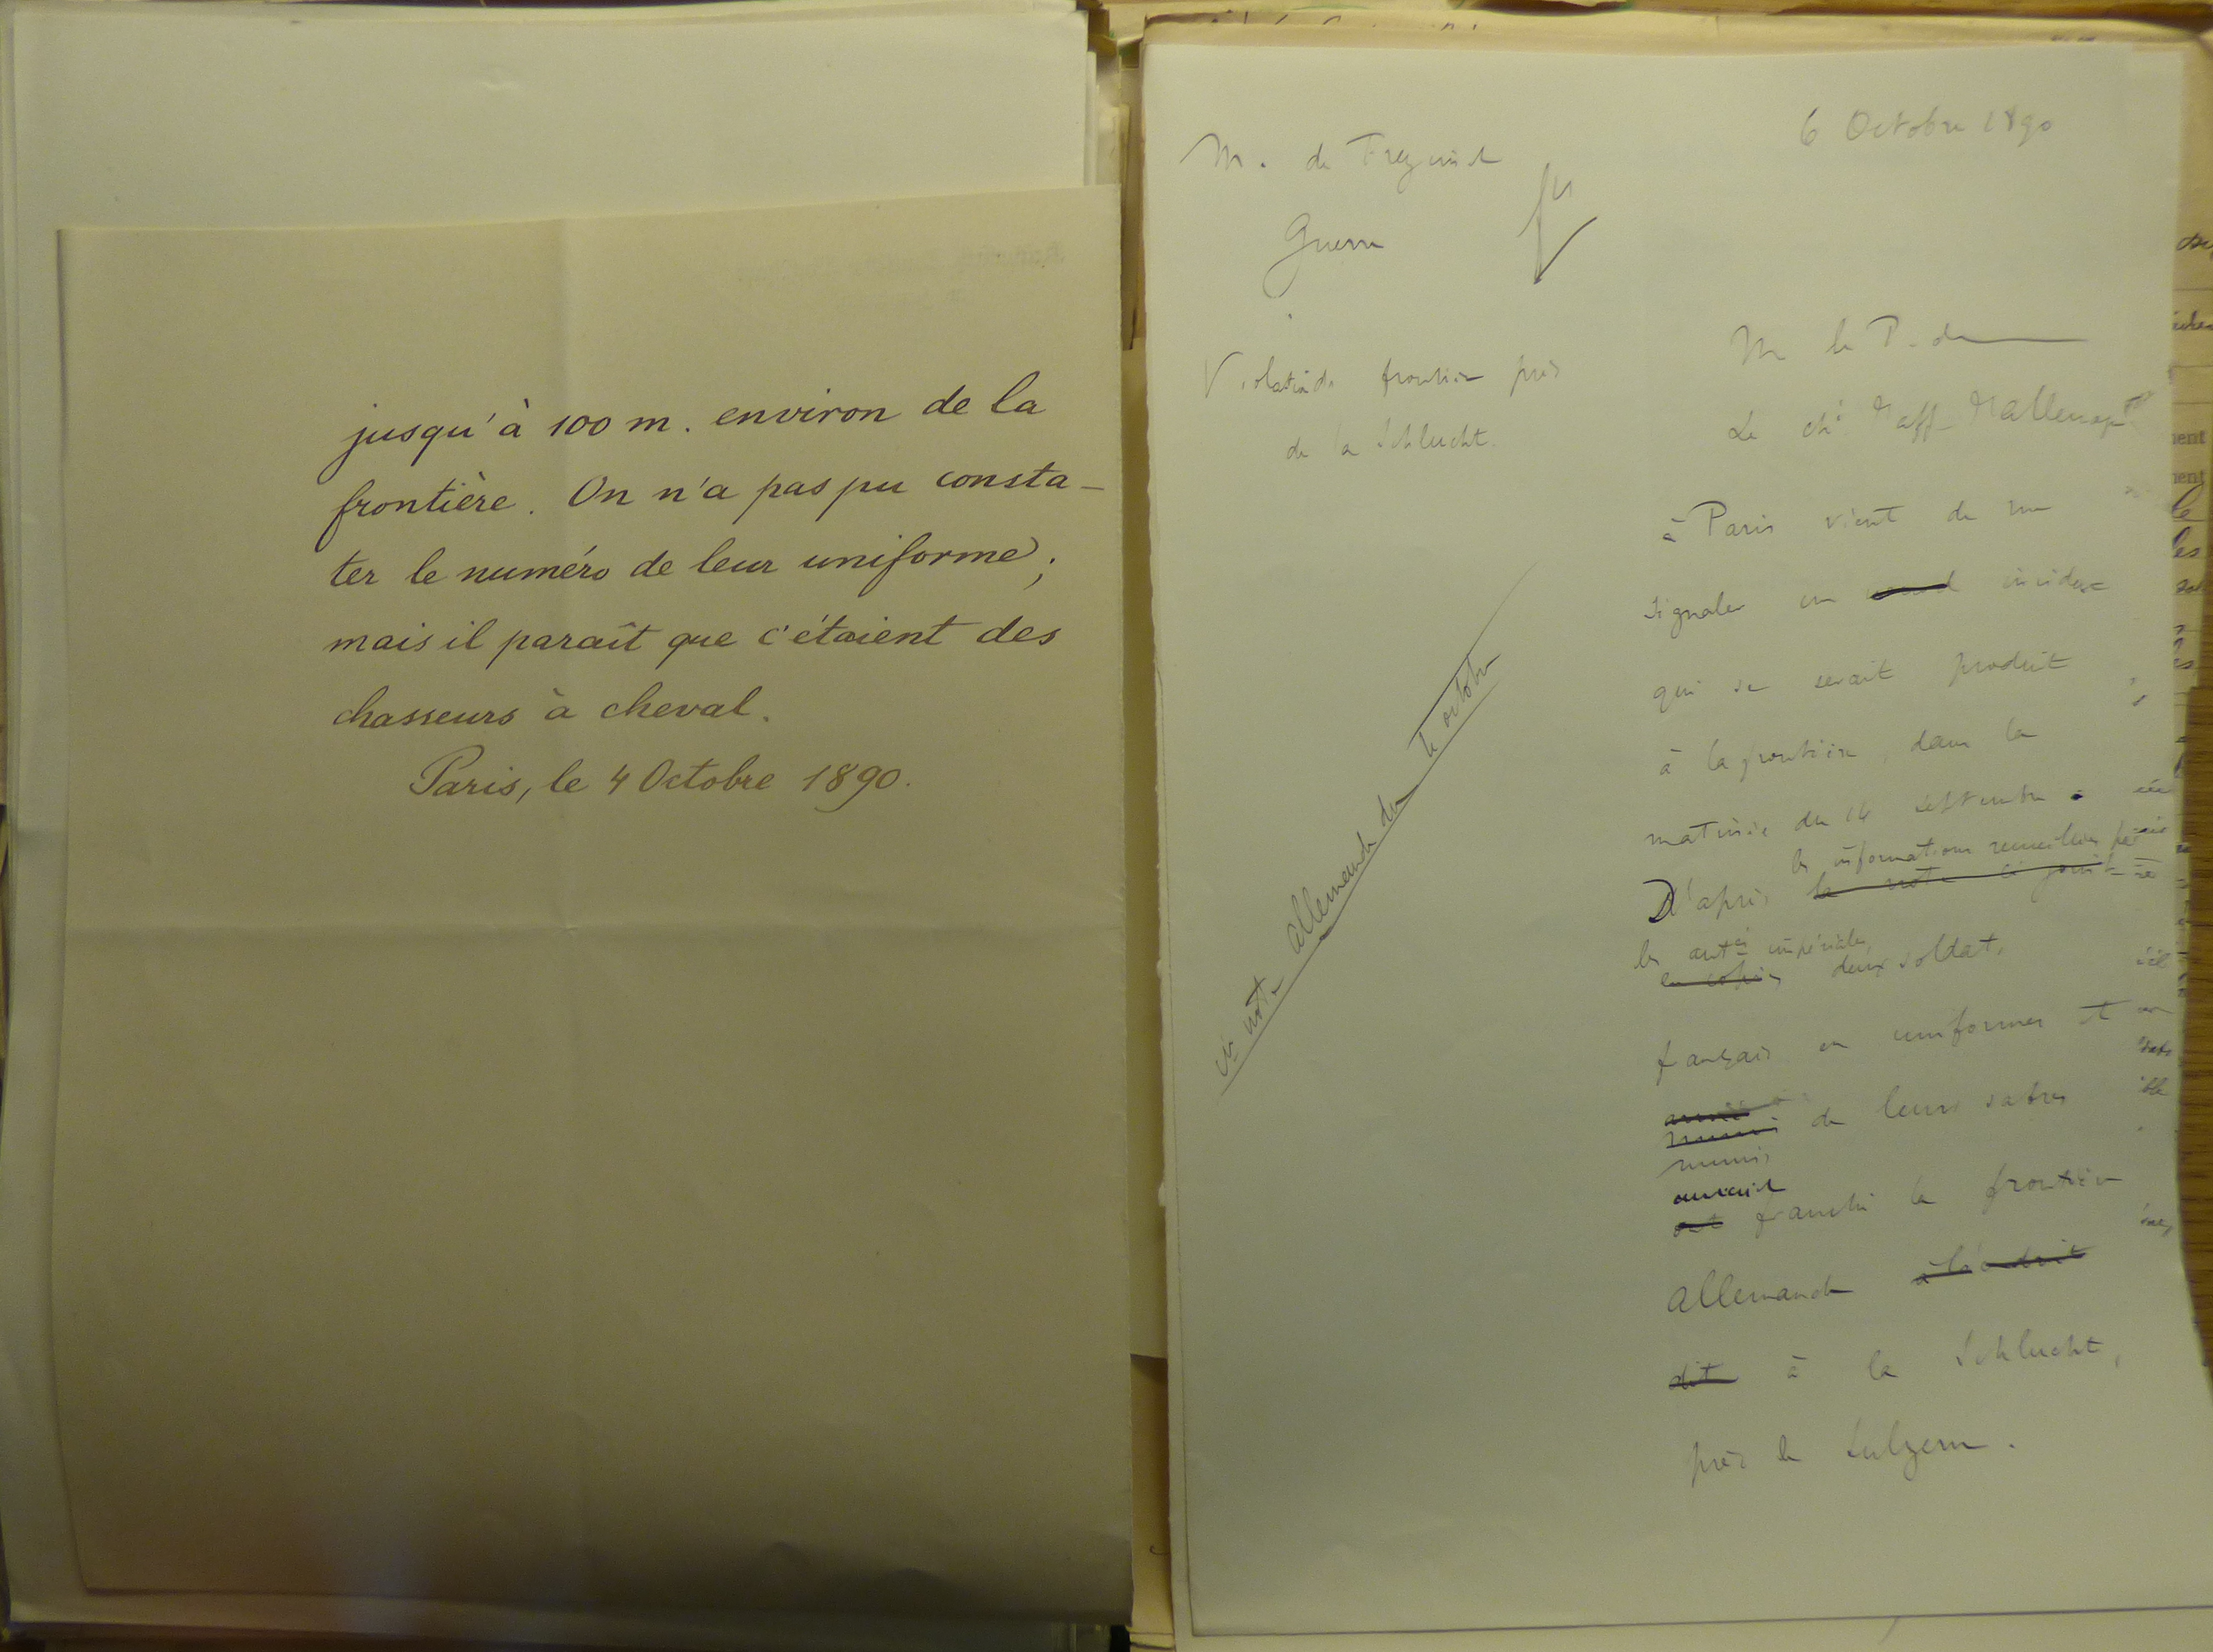 jusqu'à 100 m. environ de la
frontière. On n'a pas pu consta-
ter le numéro de leur uniforme;
mais il paraît que c'étaient des
chasseurs à cheval.
Paris, le 4 Octobre 1890.
6 Octobre 1890
M. de Freycinet
Guerre
Violation de frontière près
de la Schlucht.
ci note allemande du 4 octobre
M le P. de
Le ché d'aff. d'Allemagne
à Paris vient de me
signaler un incident
qui se serait produit
à la frontière, dans la
matinée du 14 septembre.
les informations recueillies par
D'après la note ci jointe
les autés impériales,
en copie deux soldats
français en uniformes et
armés
munis de leurs sabres
munis
auraient
ont franchi la frontière
allemande à l'endroit
dit à la Schlucht,
près de Sulzern.